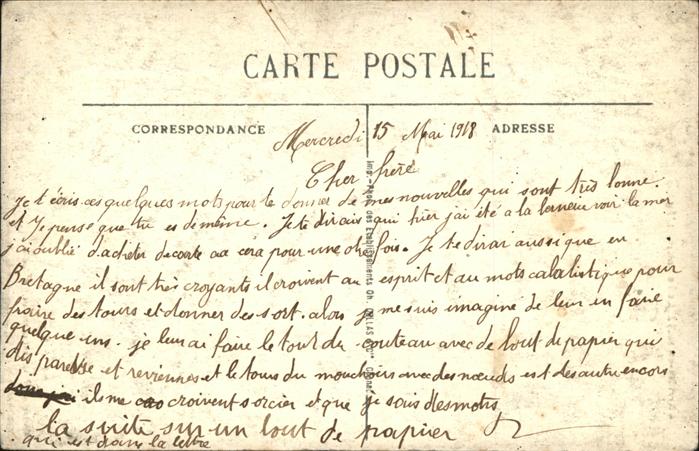 CARTE POSTALE
CORRESPONDANCE
ADRESSE
Mercredi 15 Mai 1918
Cher frère
Je t'écris ces quelques mots pour te donner de mes nouvelles qui sont très bonne.
et je pense que tu es de même. Je te dirais qui hier j'ai été a la voir la mer
j'ai oublié d'acheter de carte sa cera pour une otre fois. Je te dirai aussi que en
Bretagne il sont très croyants il croivent au esprit et au mots cabalistique pour
faire des tours et donner des sort. alors je me suis imaginé de leur en faire
quelque uns. je leur ai faire le tour du couteau avec de bout de papier qui
disparesse et reviennes et le tours du mouchoirs avec des nœuds est des autre encors
il me croivent sorcier et que je sais des mots
la suite sur un bout de papier
qui est dans la lettre